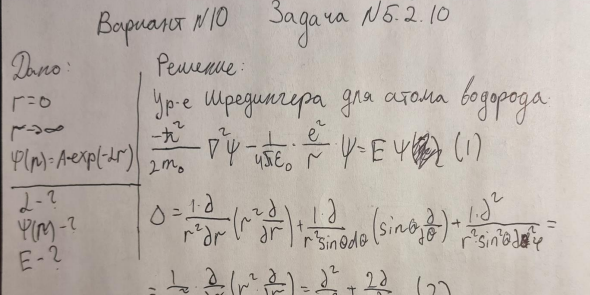 Вариант №10 Задача №5.2.10
Дано:
r=0
r→∞
φ(r)=A·exp(-αr)
α-?
φ(r)-?
E-?
Решение:
Ур-е Шредингера для атома водорода
-ħ²/2m₀ ∇²ψ - 1/4πε₀ · e²/r ψ = Eψ (1)
Δ = 1·∂/r²∂r (r² ∂/∂r) + 1·∂/r²sinθ∂θ (sinθ ∂/∂θ) + 1·∂²/r²sin²θ∂²φ =
= 1/r² · ∂/∂r (r² ∂/∂r) = ∂²/ + 2∂/ (2)